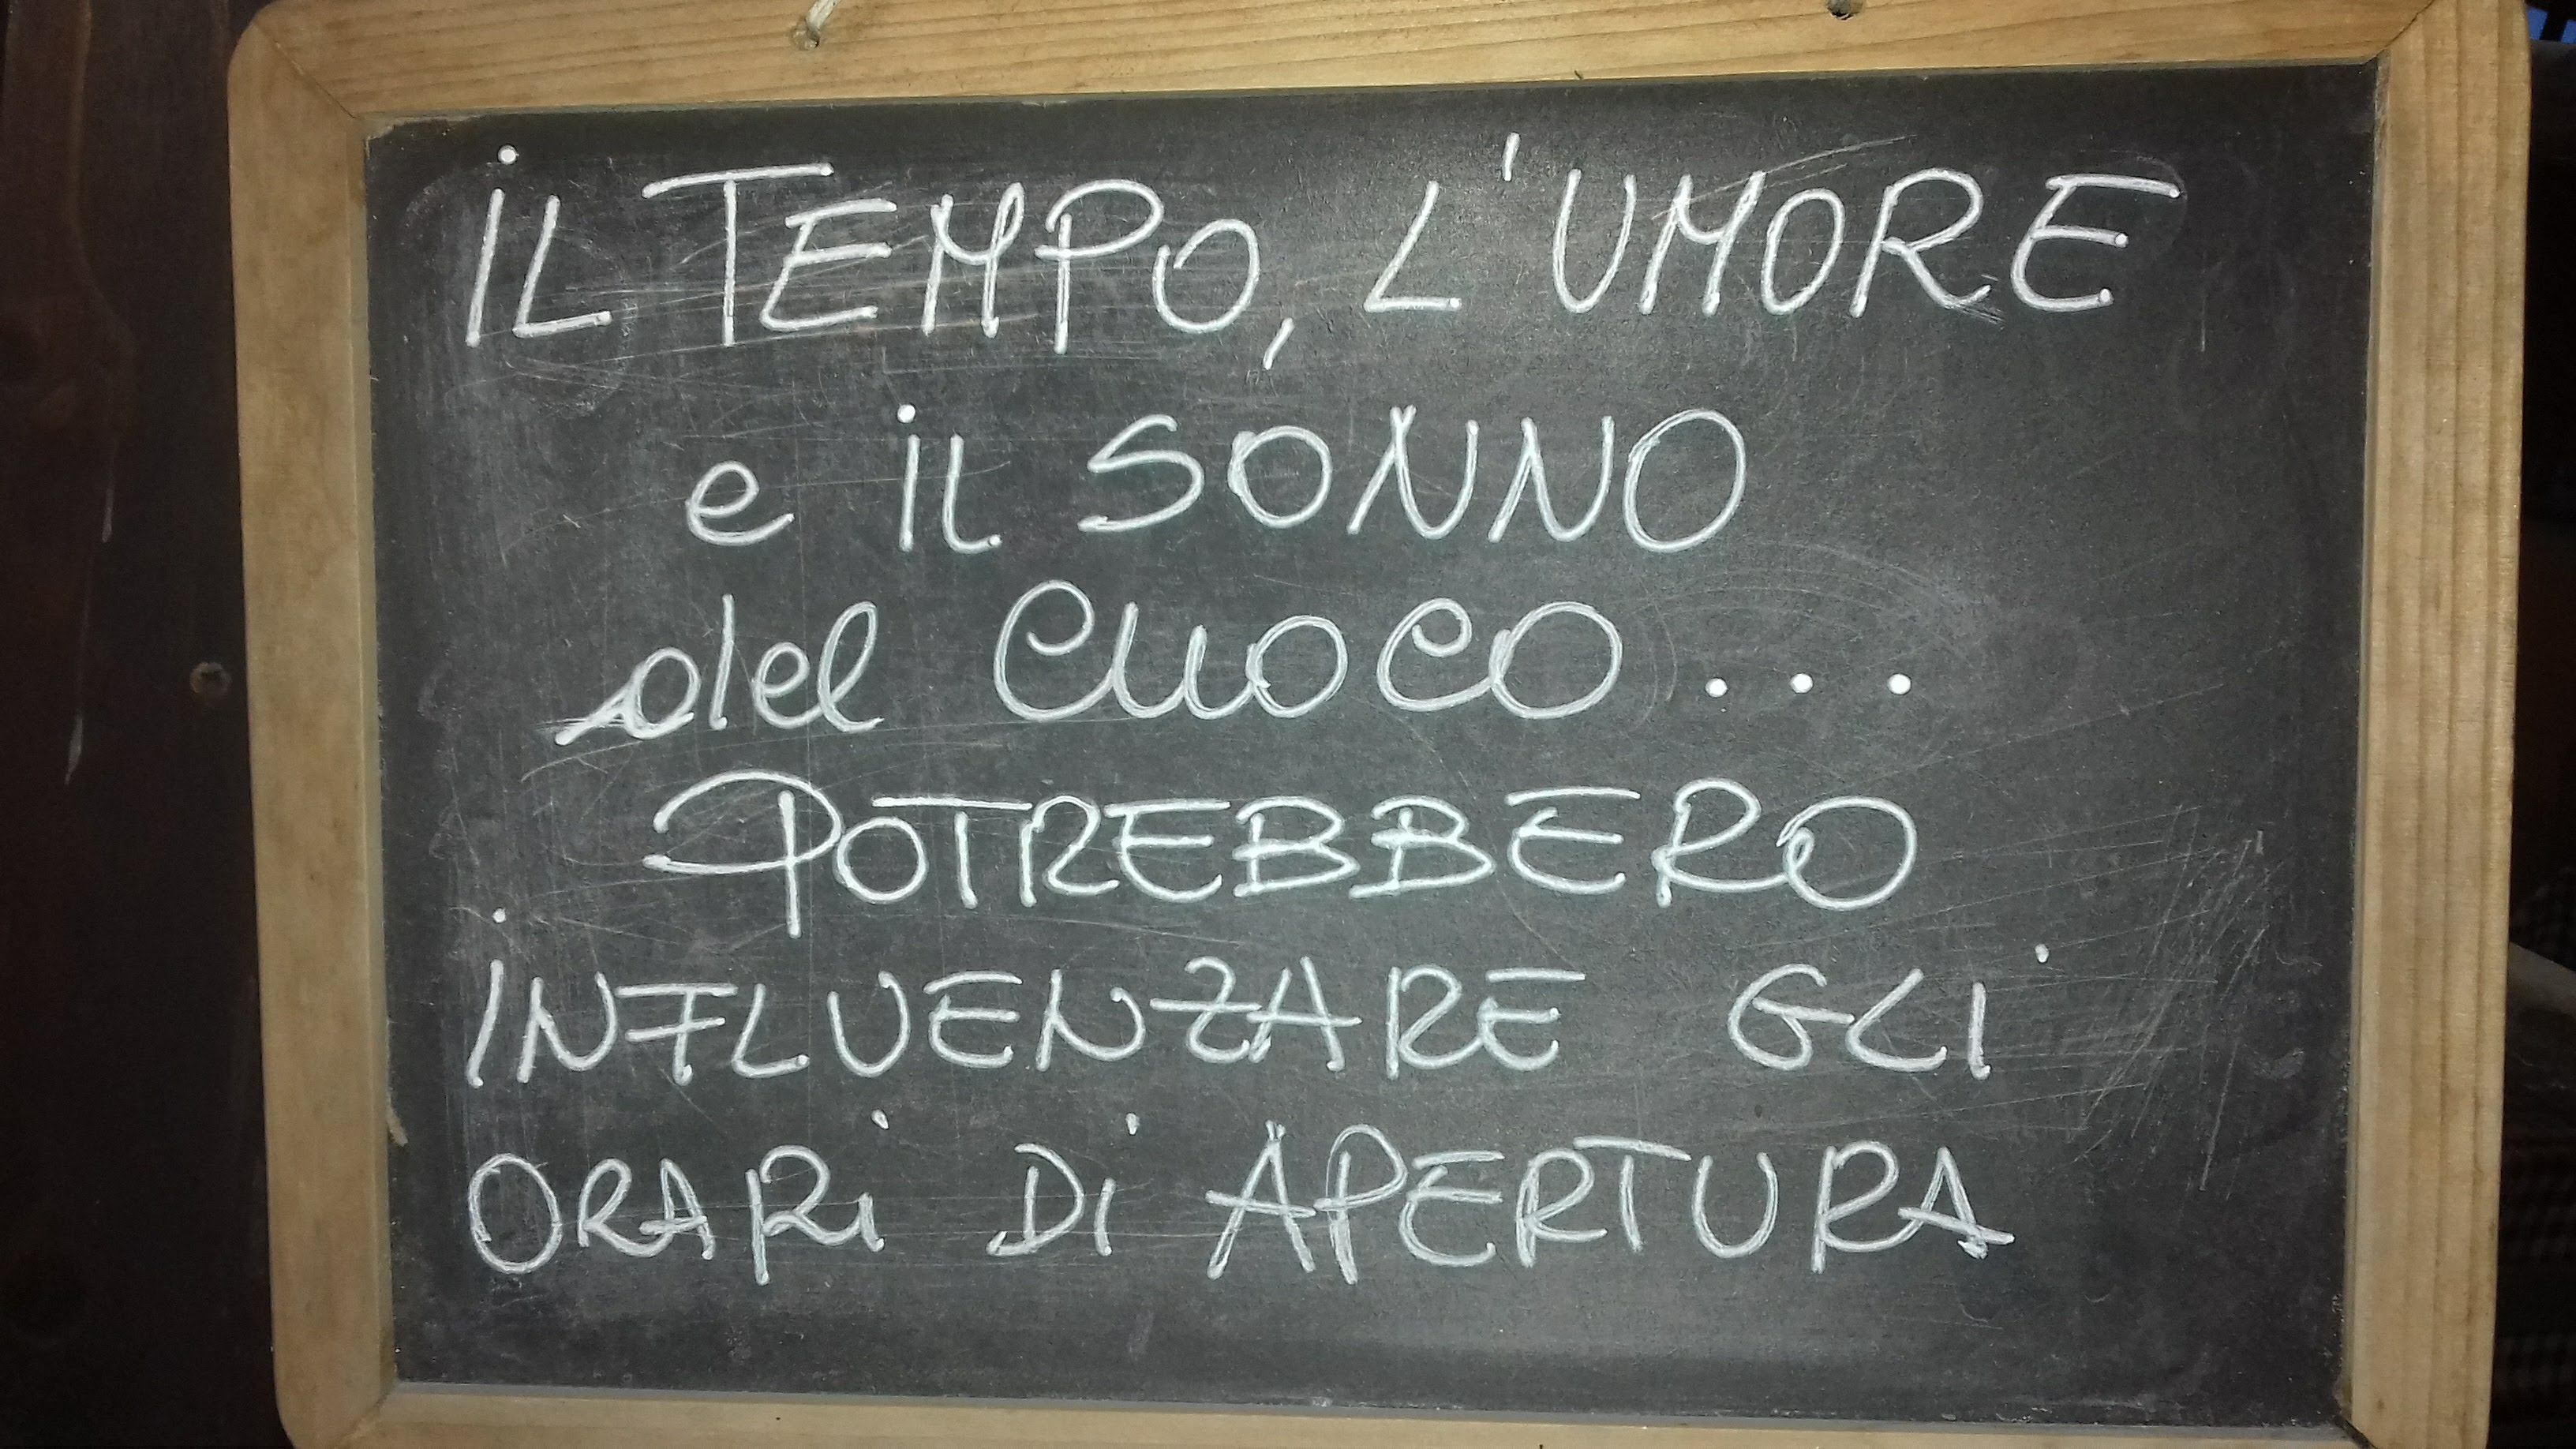 IL TEMPO, L'UMORE
e IL SONNO
del CUOCO...
POTREBBERO
INFLUENZARE GLI
ORARI DI APERTURA